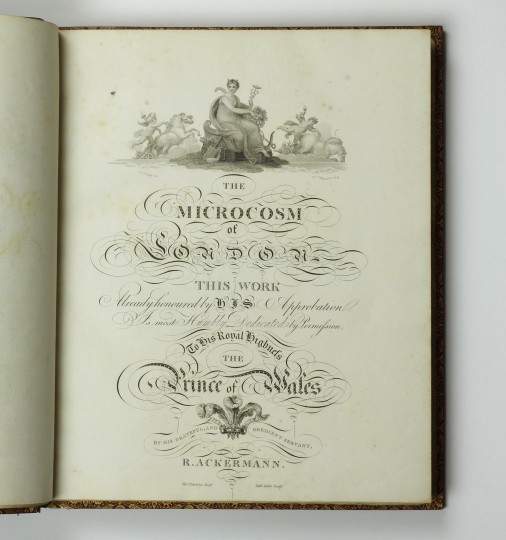 THE
MICROCOSM
of
LONDON
THIS WORK
Already honoured by HIS Approbation
Is most Humbly Dedicated by Permission
To His Royal Highness
THE
Prince of Wales
BY HIS GRATEFUL AND OBEDIENT SERVANT,
R. ACKERMANN.